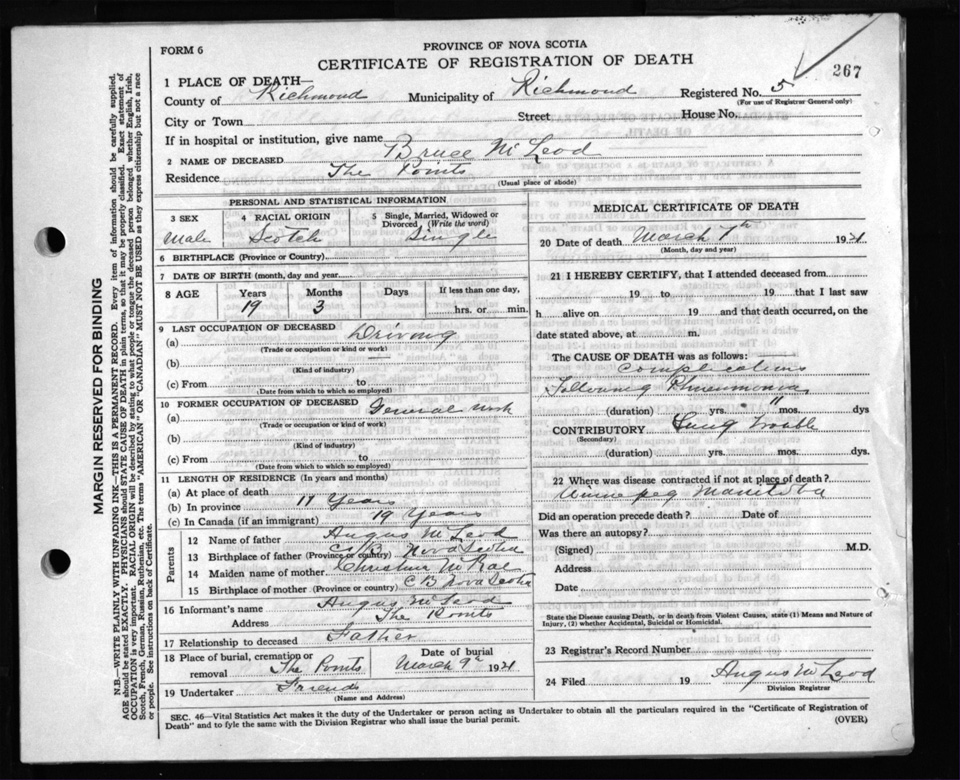 FORM 6
PROVINCE OF NOVA SCOTIA
CERTIFICATE OF REGISTRATION OF DEATH
267
1 PLACE OF DEATH—
County of Richmond Municipality of Richmond Registered No. 5
(For use of Registrar General only)
City or Town Street House No.
If in hospital or institution, give name
2 NAME OF DECEASED Bruce McLeod
Residence The Points
(Usual place of abode)
PERSONAL AND STATISTICAL INFORMATION
3 SEX 4 RACIAL ORIGIN 5 Single, Married, Widowed or Divorced (Write the word)
Male Scotch Single
6 BIRTHPLACE (Province or Country)
7 DATE OF BIRTH (month, day and year)
8 AGE Years Months Days If less than one day,
19 3 hrs. or min.
9 LAST OCCUPATION OF DECEASED
(a) Driving
(Trade or occupation or kind of work)
(b)
(Kind of industry)
(c) From to
(Date from which to which so employed)
10 FORMER OCCUPATION OF DECEASED
(a) General work
(Trade or occupation or kind of work)
(b)
(Kind of industry)
(c) From to
(Date from which to which so employed)
11 LENGTH OF RESIDENCE (In years and months)
(a) At place of death
(b) In province Years
(c) In Canada (if an immigrant) 19 Years
Parents
12 Name of father Angus McLeod
13 Birthplace of father (Province or country) C B Nova Scotia
14 Maiden name of mother Christina McRae
15 Birthplace of mother (Province or country) C B Nova Scotia
16 Informant's name Angus McLeod
Address The Points
17 Relationship to deceased Father
18 Place of burial, cremation or removal The Points Date of burial March 9th 1921
19 Undertaker Friends
(Name and Address)
MEDICAL CERTIFICATE OF DEATH
20 Date of death March 7th 1921
(Month, day and year)
21 I HEREBY CERTIFY, that I attended deceased from
19 to 19 that I last saw
h alive on 19 and that death occurred, on the
date stated above, at m.
The CAUSE OF DEATH was as follows:
Complications
Following Pneumonia
(duration) yrs. mos. dys
CONTRIBUTORY Lung trouble
(Secondary)
(duration) yrs. mos. dys.
22 Where was disease contracted if not at place of death?
Winnepeg Manitoba
Did an operation precede death? Date of
Was there an autopsy?
(Signed) M.D.
Address
Date
State the Disease causing Death, or in death from Violent Causes, state (1) Means and Nature of
Injury, (2) whether Accidental, Suicidal or Homicidal.
23 Registrar's Record Number
24 Filed 19 Angus McLeod
Division Registrar
SEC. 46—Vital Statistics Act makes it the duty of the Undertaker or person acting as Undertaker to obtain all the particulars required in the "Certificate of Registration of
Death" and to fyle the same with the Division Registrar who shall issue the burial permit.
(OVER)
MARGIN RESERVED FOR BINDING
N.B.—WRITE PLAINLY WITH UNFADING INK—THIS IS A PERMANENT RECORD. Every item of information should be carefully supplied.
AGE should be stated EXACTLY. PHYSICIANS should STATE CAUSE OF DEATH in plain terms, so that it may be properly classified. Exact statement of
OCCUPATION is very important. RACIAL ORIGIN will be described by stating to what people or tongue the deceased person belonged whether English, Irish,
Scotch, French, German, Russian, Ruthenian, etc. The terms "AMERICAN" or "CANADIAN" MUST NOT BE USED as they express citizenship but not a race
or people. See instructions on back of Certificate.